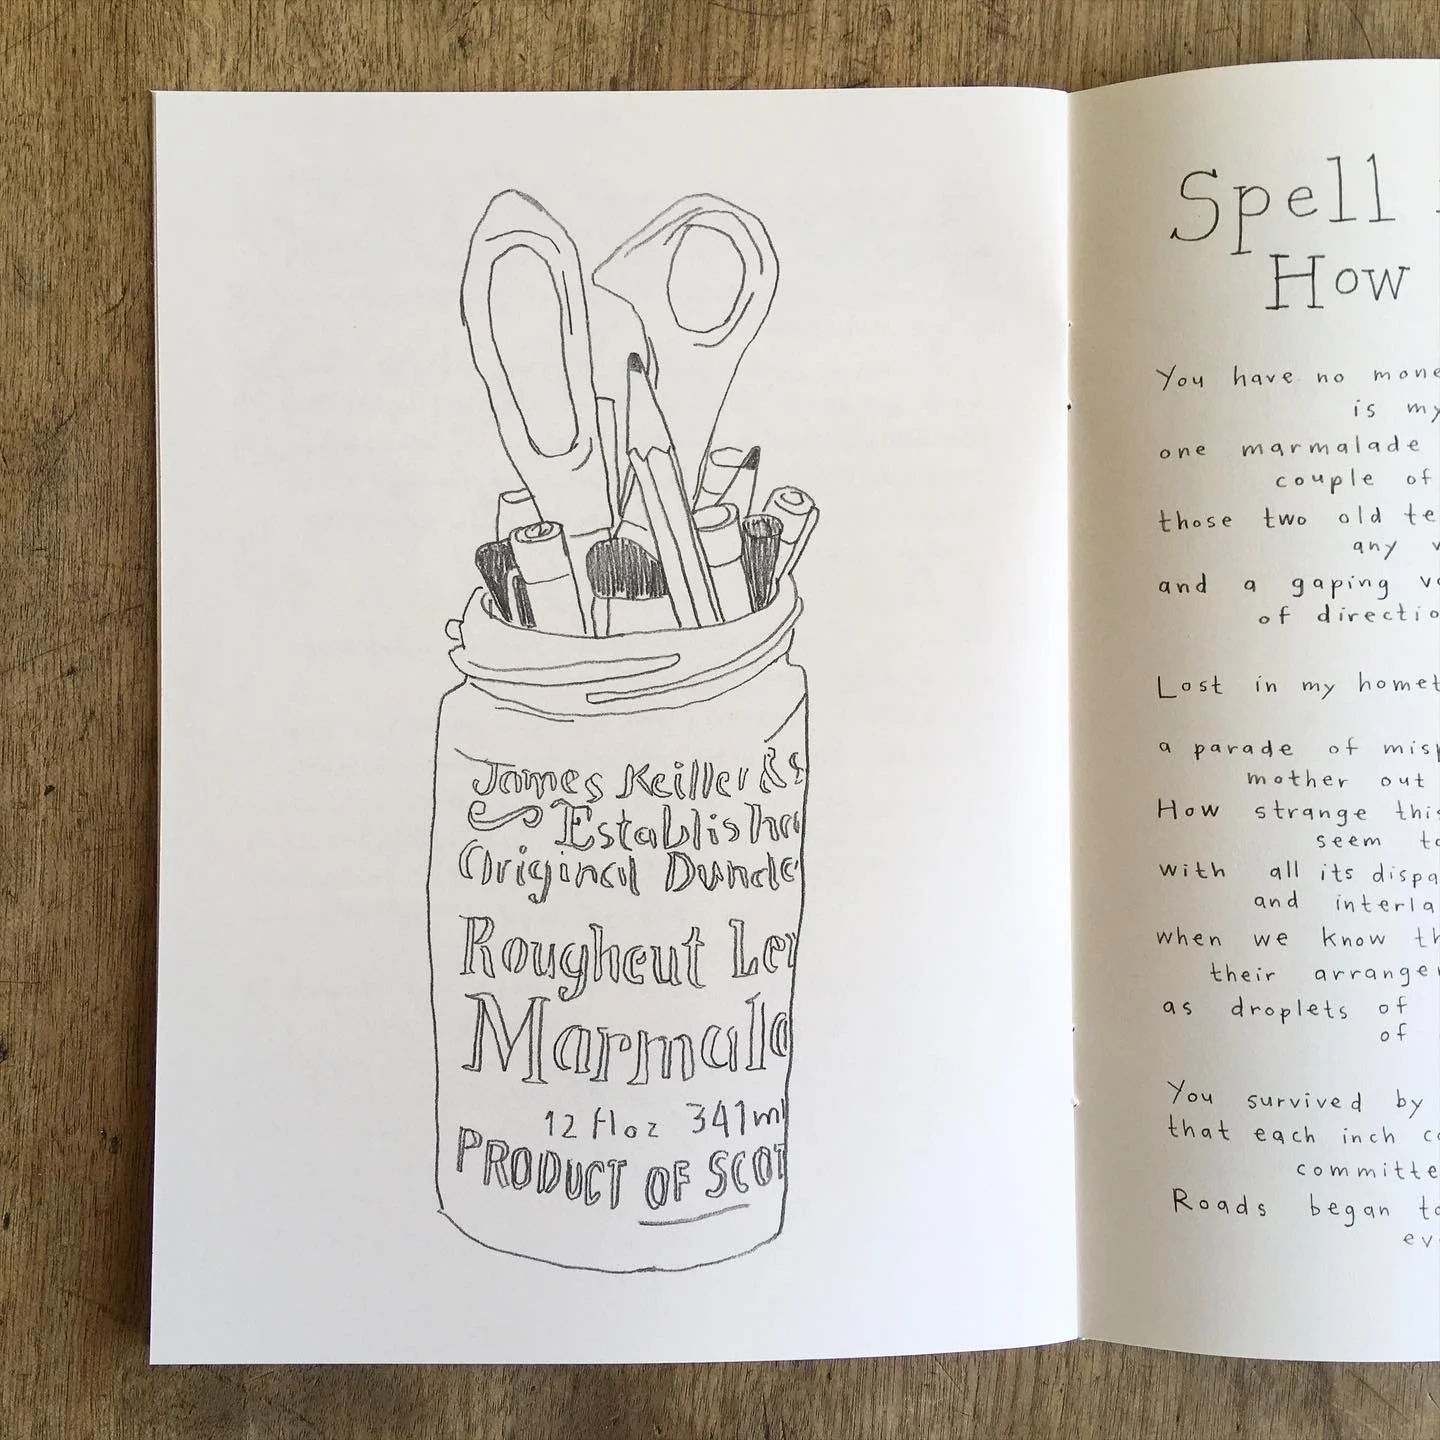 James Keiller &
Establish
Original Dunde
Roughcut Le
Marmala
12 fl oz 341ml
PRODUCT OF SCOT
Spell
How
You have no mone
is my
one marmalade
couple of
those two old te
any
and a gaping v
of directio
Lost in my homet
a parade of misp
mother out
How strange this
seem to
with all its dispa
and interla
when we know th
their arrange
as droplets of
of
You survived by
that each inch co
committe
Roads began to
ev